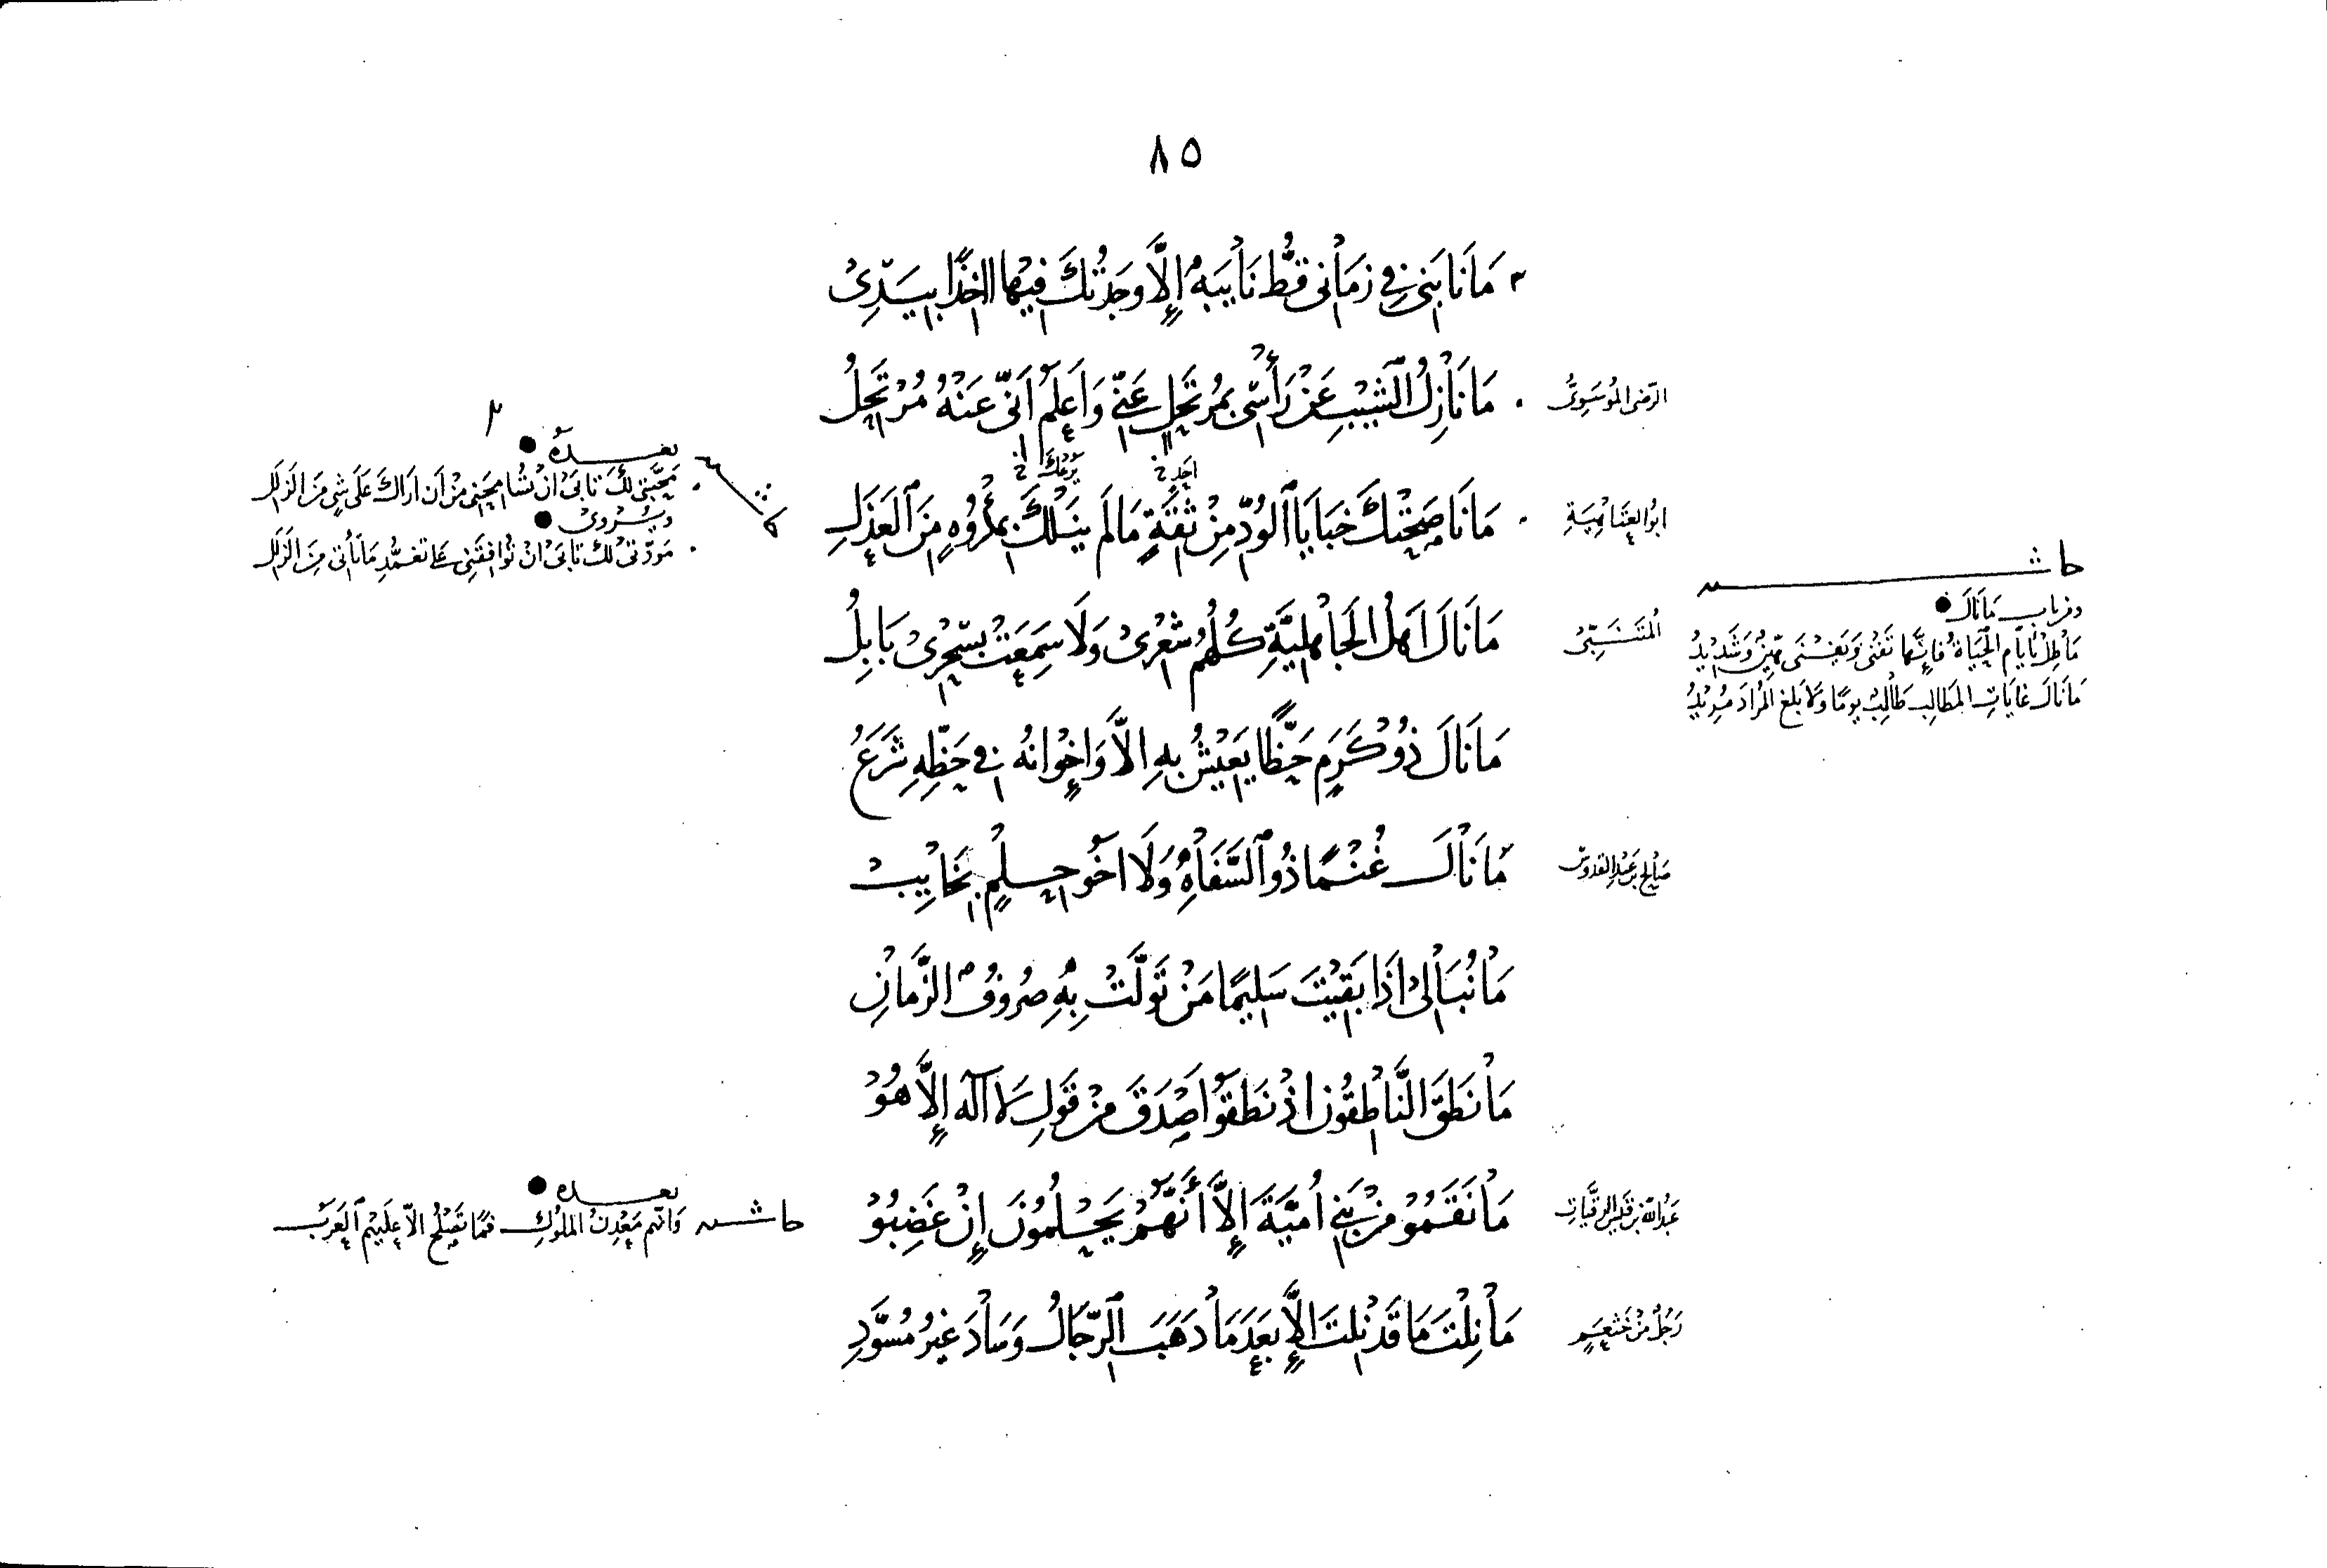 ٨٥
مَا نَابَنِي فِي زَمَانِي قَطُّ نَايِبَةٌ إِلَّا وَجَدْتُكَ فِيهَا آخِذًا بِيَدِي
الرضى الموسوي
مَا نَازِلُ الشَّيْبِ عَنْ رَأْسِي بِمُرْتَحِلٍ عَنِّي وَأَعْلَمُ أَنِّي عَنْهُ مُرْتَحِلُ
ابو العتاهية
مَا نَاصَحَتْكَ خَبَايَا الْوُدِّ مِنْ ثِقَةٍ مَا لَمْ يَنَلْكَ بِمَكْرُوهٍ مِنَ الْعَذَلِ
بعده
مَحَبَّتِي لَكَ تَأْبَى أَنْ تُسَامِحَنِي مِنْ أَنْ أَرَاكَ عَلَى شَيْءٍ مِنَ الزَّلَلِ
ويُروى
مَوَدَّتِي لَكَ تَأْبَى أَنْ تُوَافِقَنِي عَلَى تَغَمُّدِ مَا تَأْتِي مِنَ الزَّلَلِ
المتنبي
مَا نَالَ أَهْلُ الْجَاهِلِيَّةِ كُلُّهُمْ شِعْرِي وَلَا سَمِعَتْ بِسِحْرِي بَابِلُ
ومن باب مَا نَالَ
مَا نَالَ غَايَاتِ الْمَطَالِبِ طَالِبٌ يَوْمًا وَلَا بَلَغَ الْمُرَادَ مُرِيدُ
مَا نَالَ ذُو كَرَمٍ حَظًّا يَعِيشُ بِهِ إِلَّا وَإِخْوَانُهُ فِي حَظِّهِ شَرَعُ
صالح بن عبد القدوس
مَا نَالَ غُنْمًا ذُو السَّفَاهِ وَلَا أَخُو حِلْمٍ بِخَايِبْ
مَا نُبَالِي إِذَا بَقِيتَ سَلِيمًا مَنْ تَوَلَّتْ بِهِ صُرُوفُ الزَّمَانِ
مَا نَطَقَ النَّاطِقُونَ إِذْ نَطَقُوا أَصْدَقَ مِنْ قَوْلِ لَا إِلَهَ إِلَّا هُوْ
عبد الله بن قيس الرقيات
مَا نَقَمُوْ مِنْ بَنِي أُمَيَّةَ إِلَّا أَنَّهُمْ يَحْلُمُونَ إِنْ غَضِبُوْ
بعده
وَأَنَّهُمْ مَعْدِنُ الْمُلُوكِ فَمَا تَصْلُحُ إِلَّا عَلَيْهِمِ الْعَرَبُ
رجل من خثعم
مَا نِلْتَ مَا قَدْ نِلْتَ إِلَّا بَعْدَ مَا ذَهَبَ الرِّجَالُ وَسَادَ غَيْرُ مُسَوَّدِ